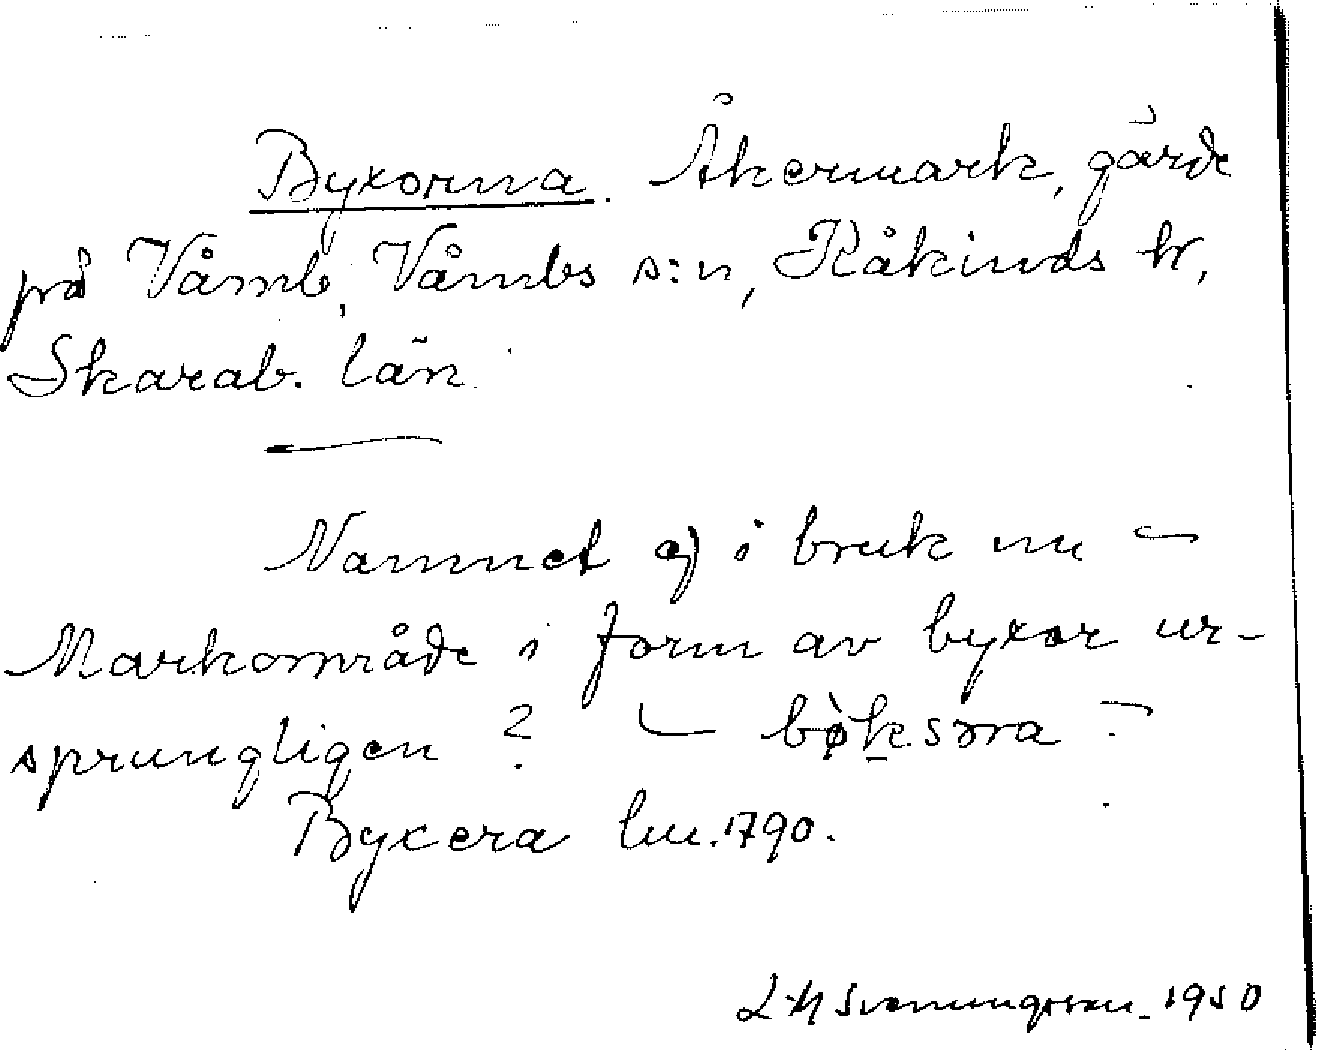 Byxorna. Åkermark, gärde
på Våmb, Våmbs s:n, Kåkinds hr,
Skarab. län.
Namnet ej i bruk nu –
Markområde i form av byxor ur-
sprungligen? – bø̀ksɔra –
Byxera lm. 1790.
Svenungsson 1950